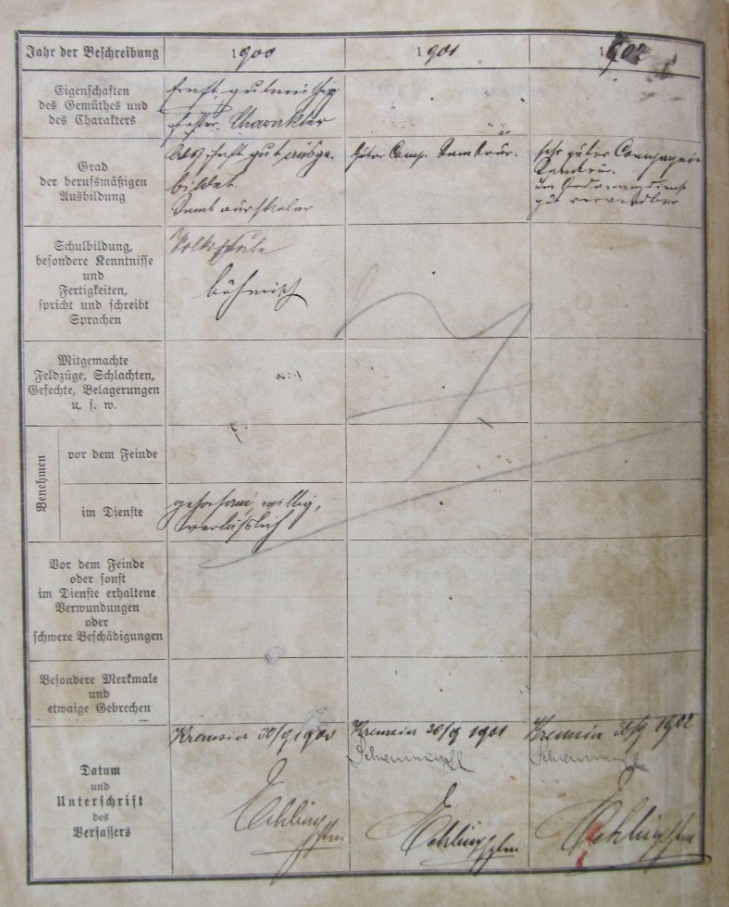 Jahr der Beschreibung
1900
1901
1902
Eigenschaften
des Gemüthes und
des Charakters
Ernst, gutmüthig
fester Charakter
Grad
der berufsmäßigen
Ausbildung
gut ausge-
bildet
guter Comp. Tambour.
sehr guter Compagnie
Tambour.
im Ordonnanzdienst
gut verwendbar
Schulbildung,
besondere Kenntnisse
und
Fertigkeiten,
spricht und schreibt
Sprachen
Volksschule
böhmisch
Mitgemachte
Feldzüge, Schlachten,
Gefechte, Belagerungen
u. s. w.
Benehmen
vor dem Feinde
im Dienste
gehorsam, willig,
verläßlich
Vor dem Feinde
oder sonst
im Dienste erhaltene
Verwundungen
oder
schwere Beschädigungen
Besondere Merkmale
und
etwaige Gebrechen
Datum
und
Unterschrift
des
Verfassers
Kremsin 30/9 1900
Kremsin 30/9 1901
Kremsin 30/9 1902